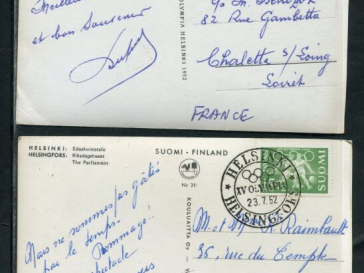 et bon Souvenir
OLYMPIA HELSINKI 1952
82 Rue Gambetta
Chalette s/ Loing
Loiret
FRANCE
HELSINKI: Eduskuntatalo
HELSINGFORS: Riksdagshuset
The Parliament
SUOMI - FINLAND
No 20
KOULKAITTA OY
HELSINKI
XV OLYMPIA
23.7.52
HELSINGFORS
SUOMI
Mais ne sommes pas gâtés
par le temps.
Dommage!
M. et Mme R. Raimbault
35, rue du Temple